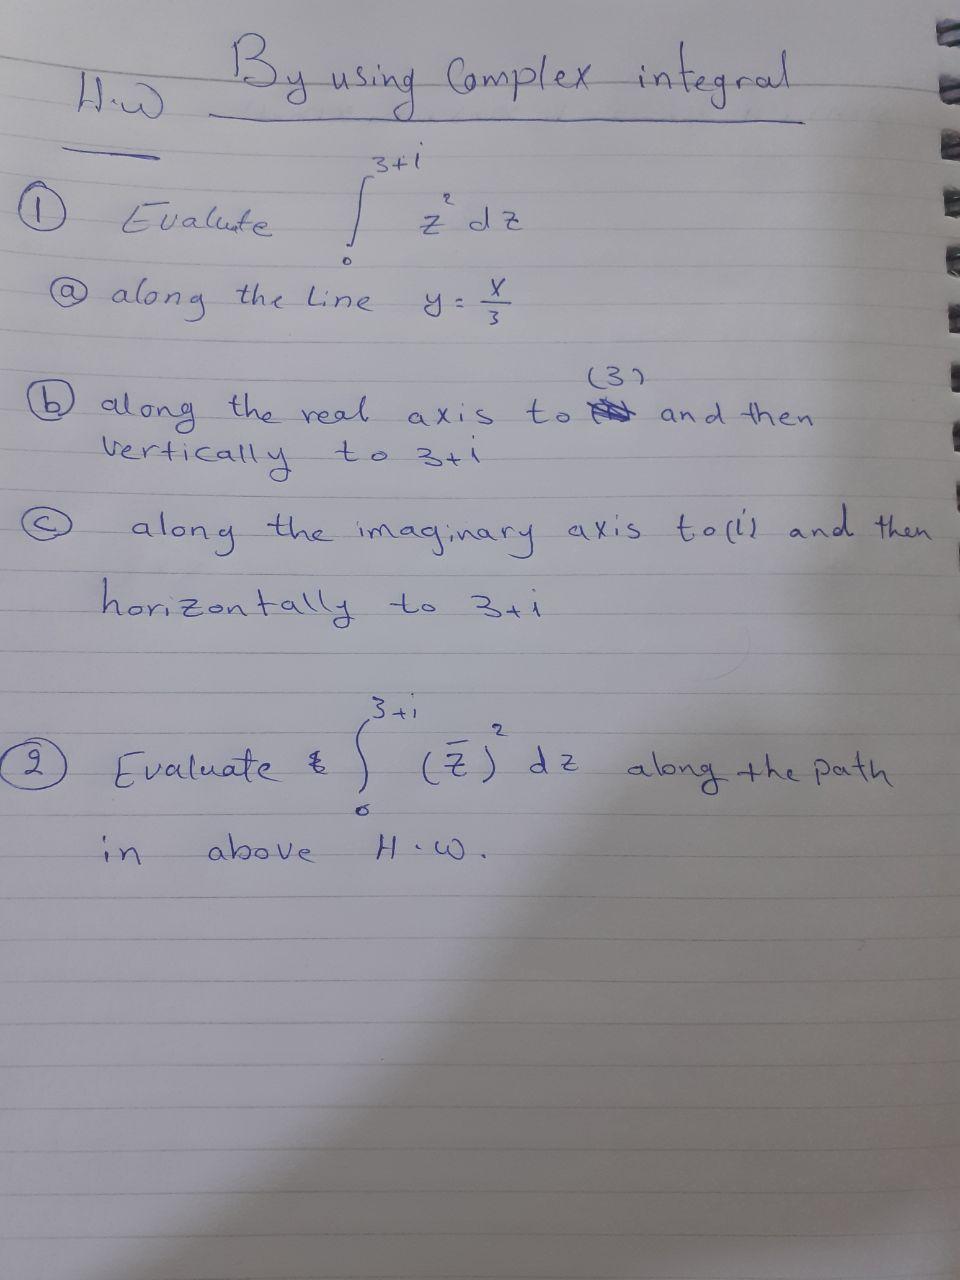 By using Complex integral
H.w
① Evalute ∫₀³⁺ⁱ z² dz
ⓐ along the Line y = x/3
(3)
ⓑ along the real axis to and then
vertically to 3+i
ⓒ along the imaginary axis to (i) and then
horizontally to 3+i
② Evaluate ∫₀³⁺ⁱ (z̄)² dz along the path
in above H.w.